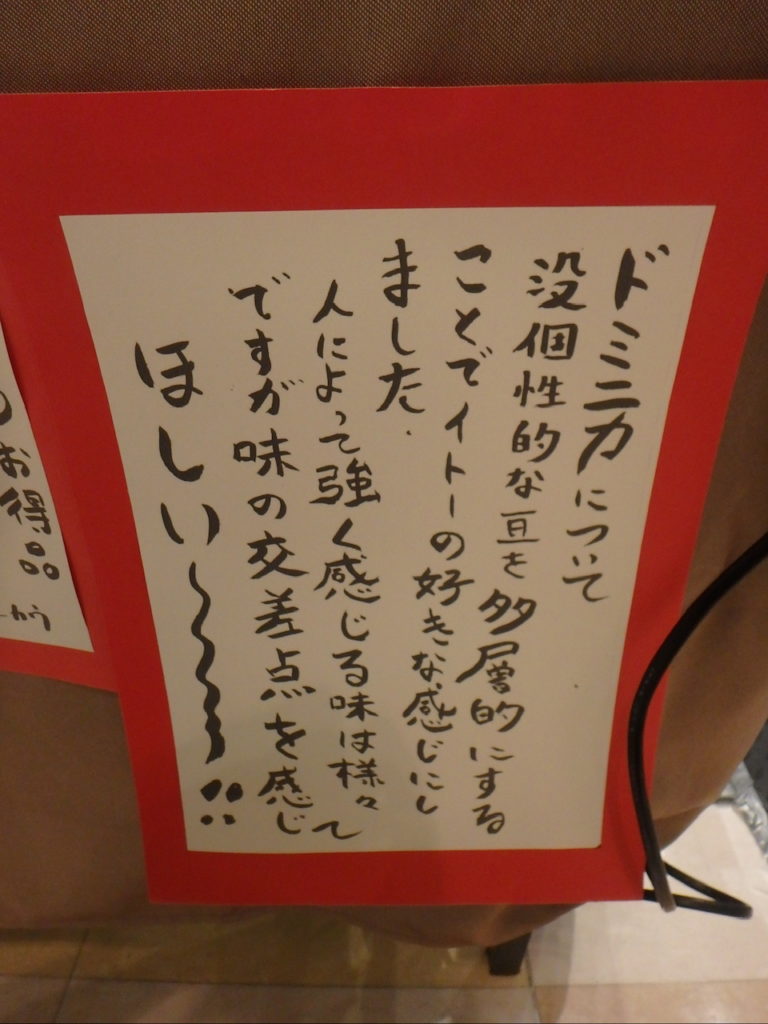 ドミニカについて
没個性的な豆を多層的にする
ことでイトーの好きな感じにし
ました.
人によって強く感じる味は様々
ですが味の交差点を感じて
ほしい〜〜〜!!
お得品